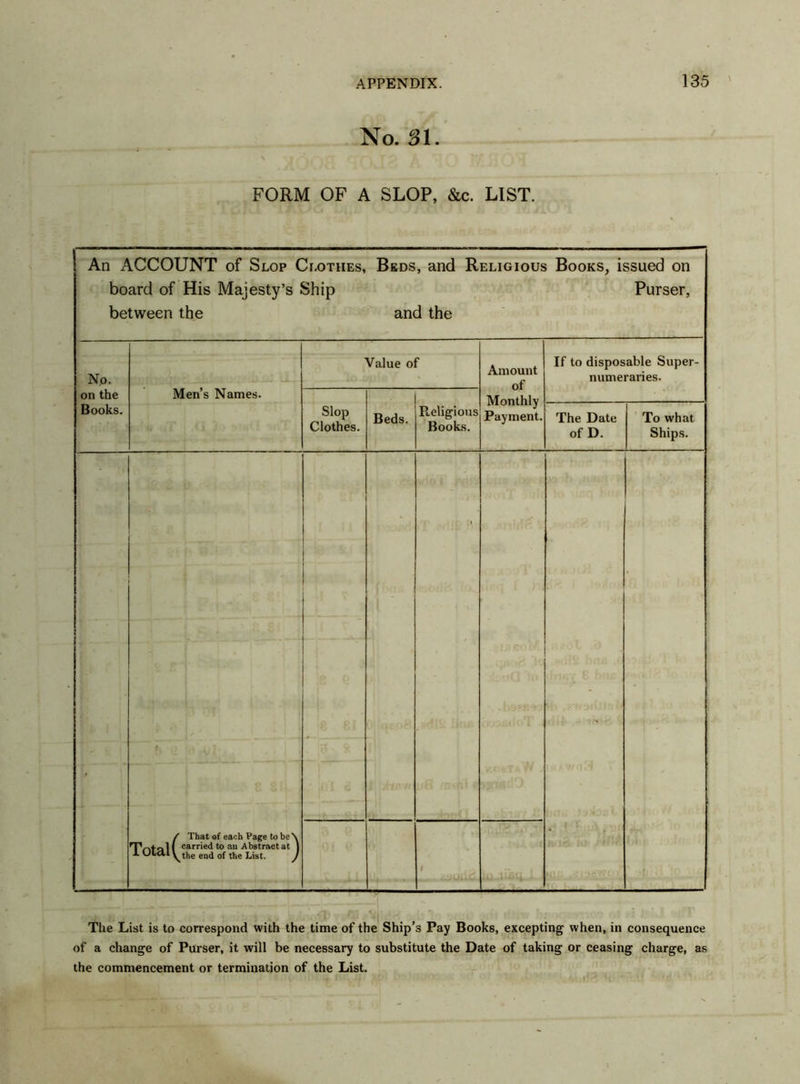 APPENDIX. 135
No. 31.
FORM OF A SLOP, &c. LIST.
An ACCOUNT of Slop Clothes, Beds, and Religious Books, issued on
board of His Majesty's Ship Purser,
between the and the
No.
on the
Books.
Men's Names.
Value of
Slop
Clothes.
Beds.
Religious
Books.
Amount
of
Monthly
Payment.
If to disposable Super-
numeraries.
The Date
of D.
To what
Ships.
Total ( That of each Page to be
carried to an Abstract at
the end of the List. )
The List is to correspond with the time of the Ship's Pay Books, excepting when, in consequence
of a change of Purser, it will be necessary to substitute the Date of taking or ceasing charge, as
the commencement or termination of the List.